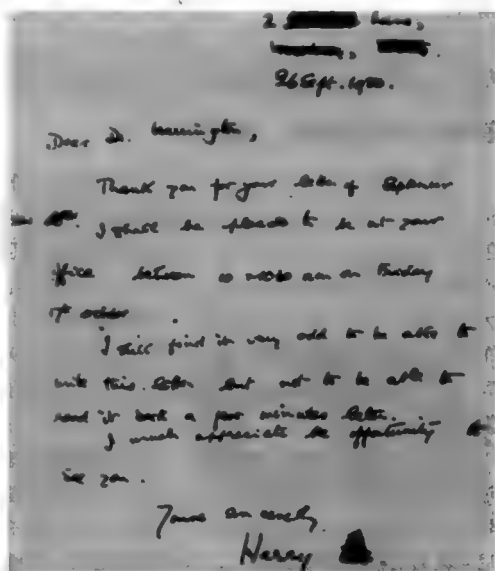 2
26 Sept. 1980.
Dear Dr. Warrington,
Thank you for your letter of September
I shall be pleased to be at your
office between 10 am on Friday
17th October.
I still find it very odd to be able to
write this letter but not to be able to
read it back a few minutes later.
I much appreciate the opportunity to
see you.
Yours sincerely
Harry